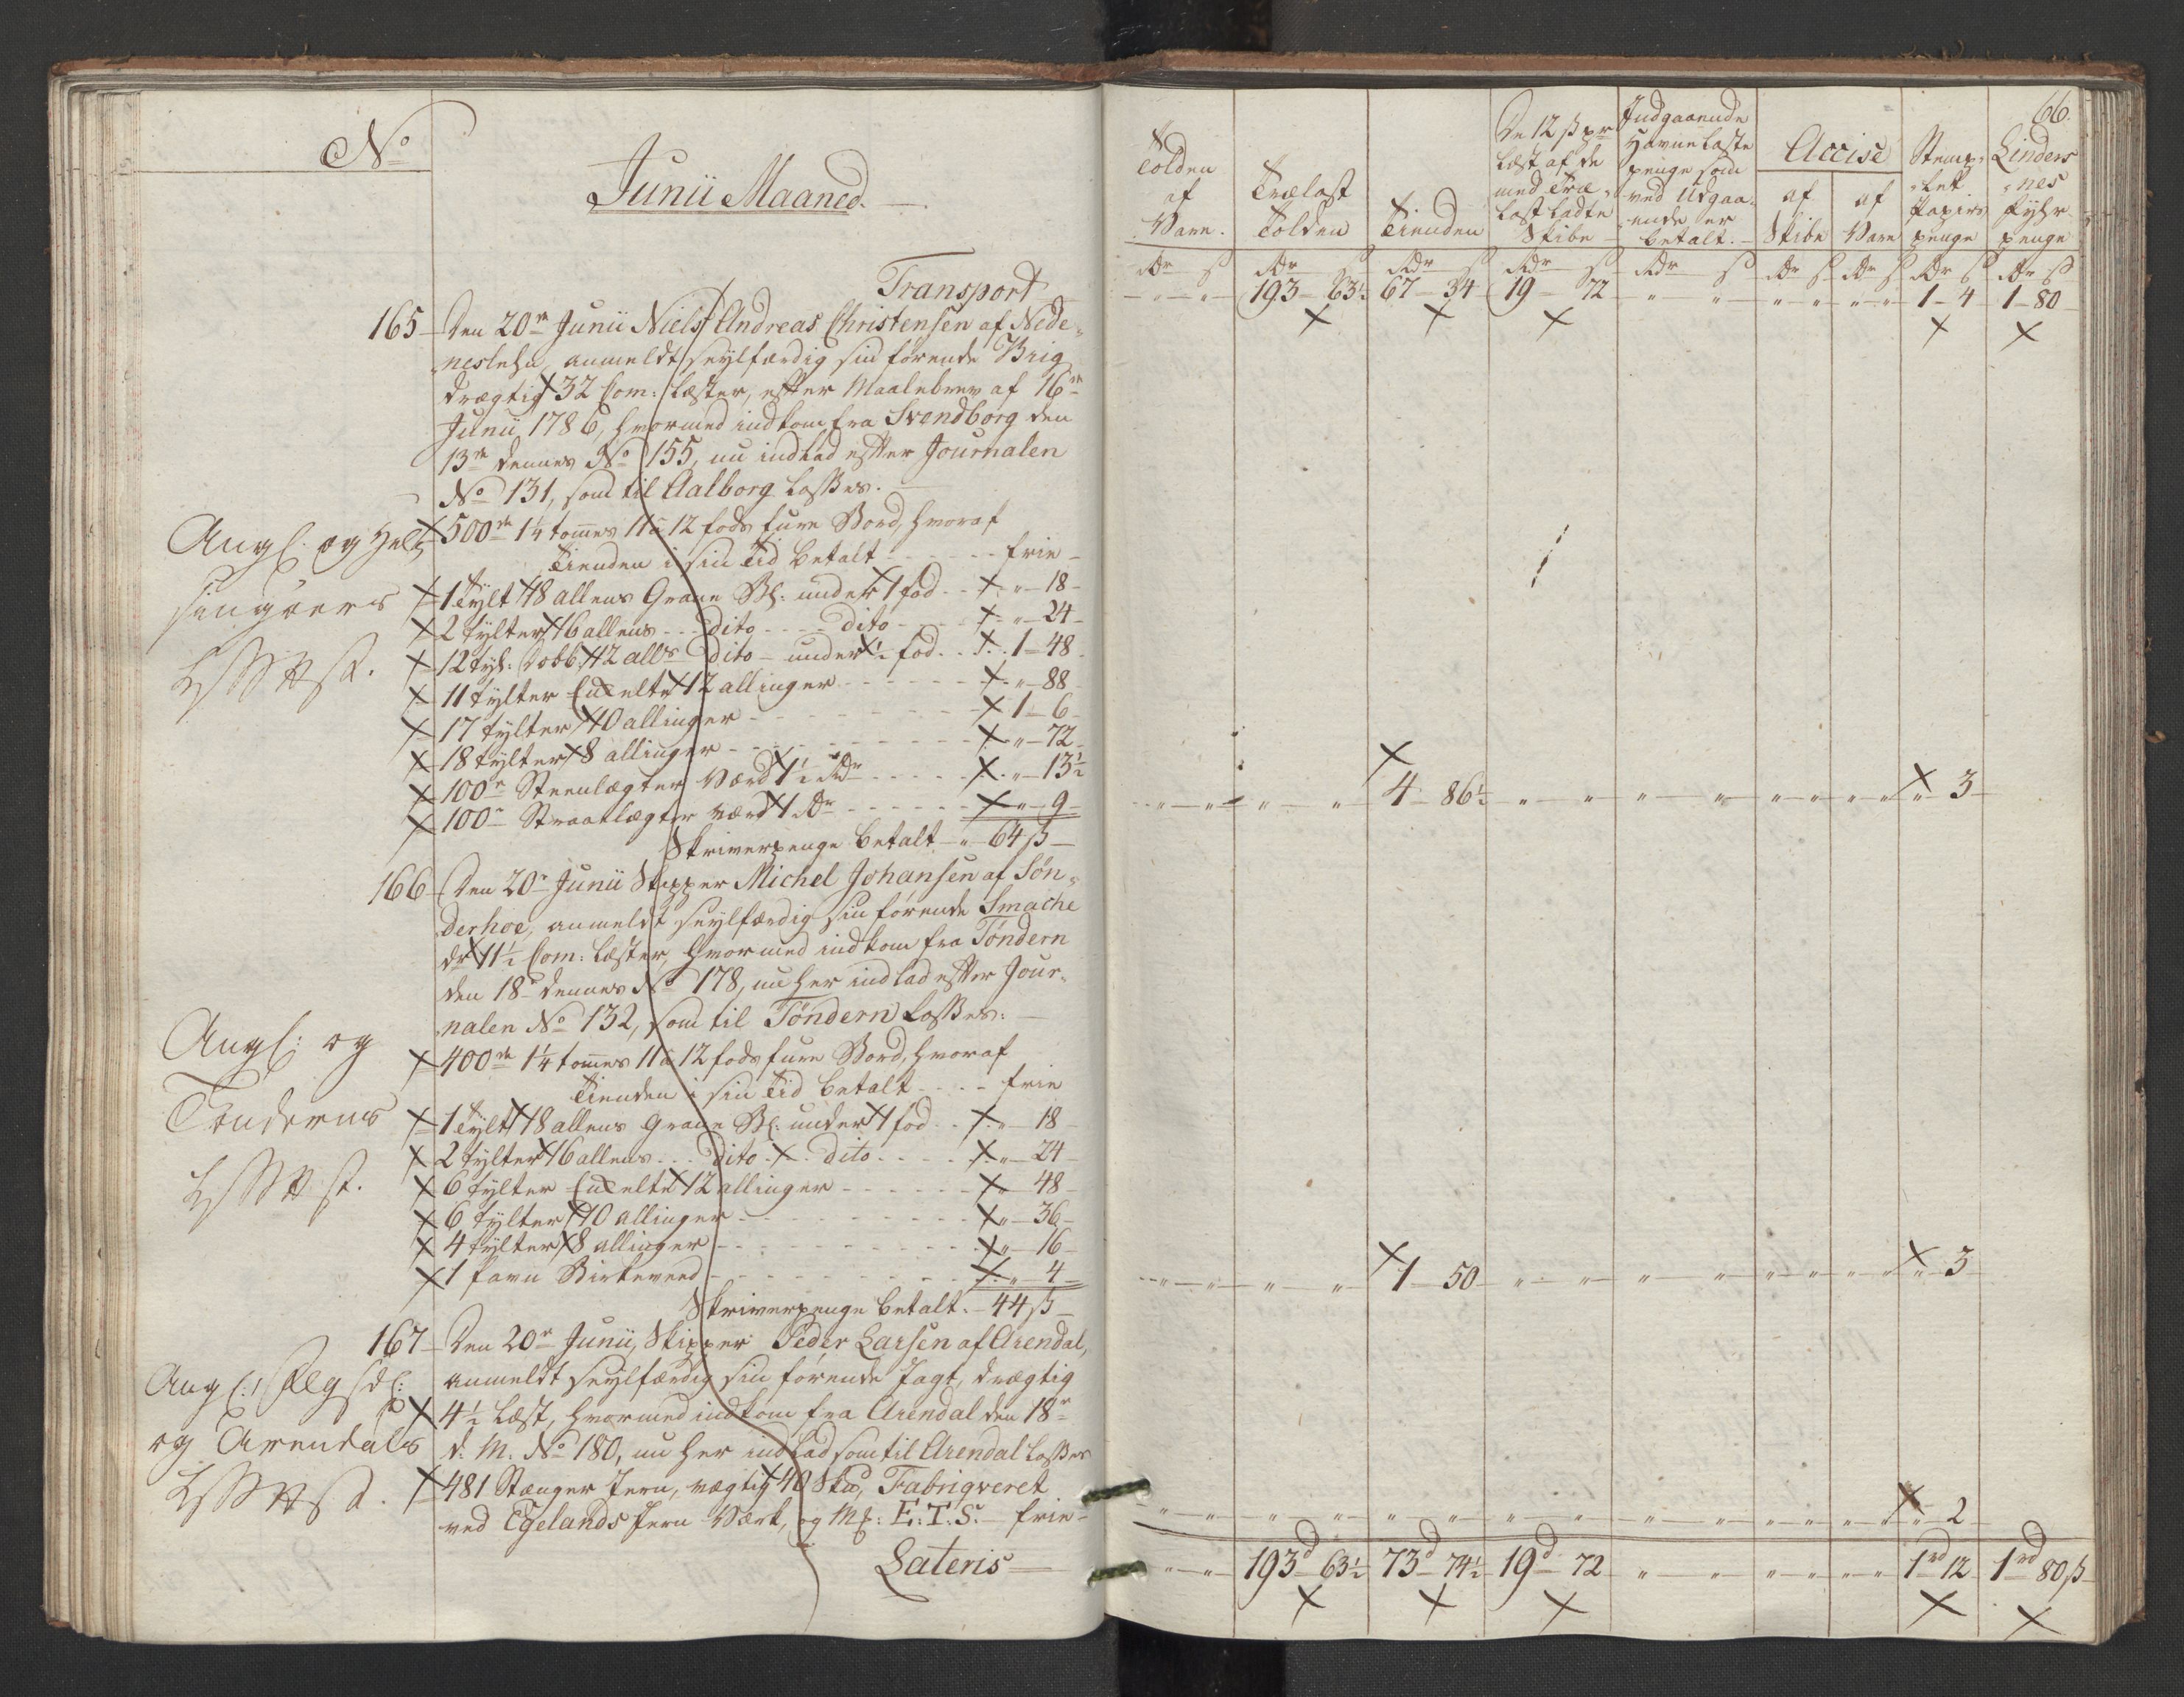 No
Junii Maaned.
Transport
165 Den 20de Junii Niels Andreas Christensen af Nede-
neslehn, anmeldt seylfærdig sin førende Brig
drægtig 32 Com: Læster, efter Maalebrev af 16de
Junii 1786, hvormed indkom fra Svendborg den
13de dennes No 155, nu indlad efter Journalen
No 131, som til Aalborg losses.
Angl. og Hel-
singöers
500de 1 1/4 tommes 11 a 12 fods furu Bord, hvoraf
Tienden i sin Tid betalt - - - frie
1 Tylt 18 allens Grane Bl: under 1 fod - - " 18
2 Tylter 16 allens - - dito - - dito - - " 24
12 Tyl: Dobb. 12 alls dito - under 1/2 fod - - 1 - 48
11 Tylter Enxelte 12 allinger - - " 88
17 Tylter 10 allinger - - 1 - 6
18 Tylter 8 allinger - - " 72
100de Steenlægter Værd 1 1/2 Rdr - - " 13 1/2
100de Straatlægter værd 1 Rdr - - " 9
Skriverpenge betalt - " 64 ß
166 Den 20de Junii Skipper Michel Johansen af Søn-
derhoe, anmeldt seylfærdig sin førende Smache
dr 11 1/2 Com: Læster, hvormed indkom fra Töndern
den 18de dennes No 178, nu her indlad efter Jour-
nalen No 132, som til Töndern losses:
Angl: og
Tönderns
400de 1 1/4 tommes 11 a 12 fods furu Bord, hvoraf
Tienden i sin Tid betalt - - - frie
1 Tylt 18 allens Grane Bl: under 1 fod - - " 18
2 Tylter 16 allens - - dito - - dito - - " 24
6 Tylter Enxelte 12 allinger - - " 48
6 Tylter 10 allinger - - " 36
4 Tylter 8 allinger - - " 16
1 favn Birkeveed - - " 4
Skriverpenge betalt - 44 ß
167 Den 20de Junii, Skipper Peder Larsen af Arendal,
anmeldt seylfærdig sin førende Jagt, drægtig
4 1/2 Læst, hvormed indkom fra Arendal den 18de
d: M: No 180, nu her indlad som til Arendal losses
Angl:
og Arendals
481 Stænger Jern, vægtig 40 Sku, Fabriqveret
ved Egelands Jern Værk, og Mk: E.T.S. - frie
Lateris
66.
Tolden af Vare.
Trælast Tolden
Tienden
De 12 ß pr Læst af de med Træ-last ladte Skibe
Indgaaende Havne Laste penge som ved Udgaa-ende er betalt.
Accise
af Skibe
af Vare
Stemp-let Papirs penge
Linders-nes Fyhr penge
Rdr ß Rdr ß Rdr ß Rdr ß Rdr ß Rdr ß Rdr ß Rdr ß Rdr ß
" " 193 - 63 1/2 67 - 34 19 - 72 " " " " " " 1 - 4 1 - 80
" " " " 4 - 86 1/2 " " " " " " " " " 3
" " " " 1 - 50 " " " " " " " " " 3
" " " " " " " " " " " " " " " 2
" " 193d 63 1/2 73d 74 1/2 19d 72 " " " " " " 1rd 12 1rd 80 ß